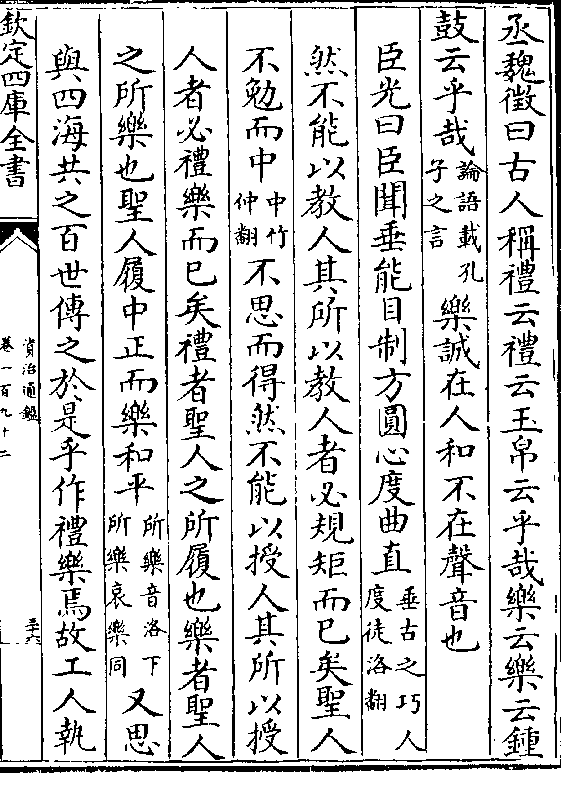 丞魏徵曰古人稱禮云禮云玉帛云乎哉樂云樂云鍾
鼓云乎哉論語載孔子之言樂誠在人和不在聲音也
臣光曰臣聞垂能目制方圓心度曲直垂古之巧人度徒洛翻
然不能以教人其所以教人者必規矩而已矣聖人
不勉而中中竹仲翻不思而得然不能以授人其所以授
人者必禮樂而已矣禮者聖人之所履也樂者聖人
之所樂也聖人履中正而樂和平所樂音洛下所樂哀樂同又思
與四海共之百世傳之於是乎作禮樂焉故工人執
欽定四庫全書
資治通鑑
卷一百九十二
三十六